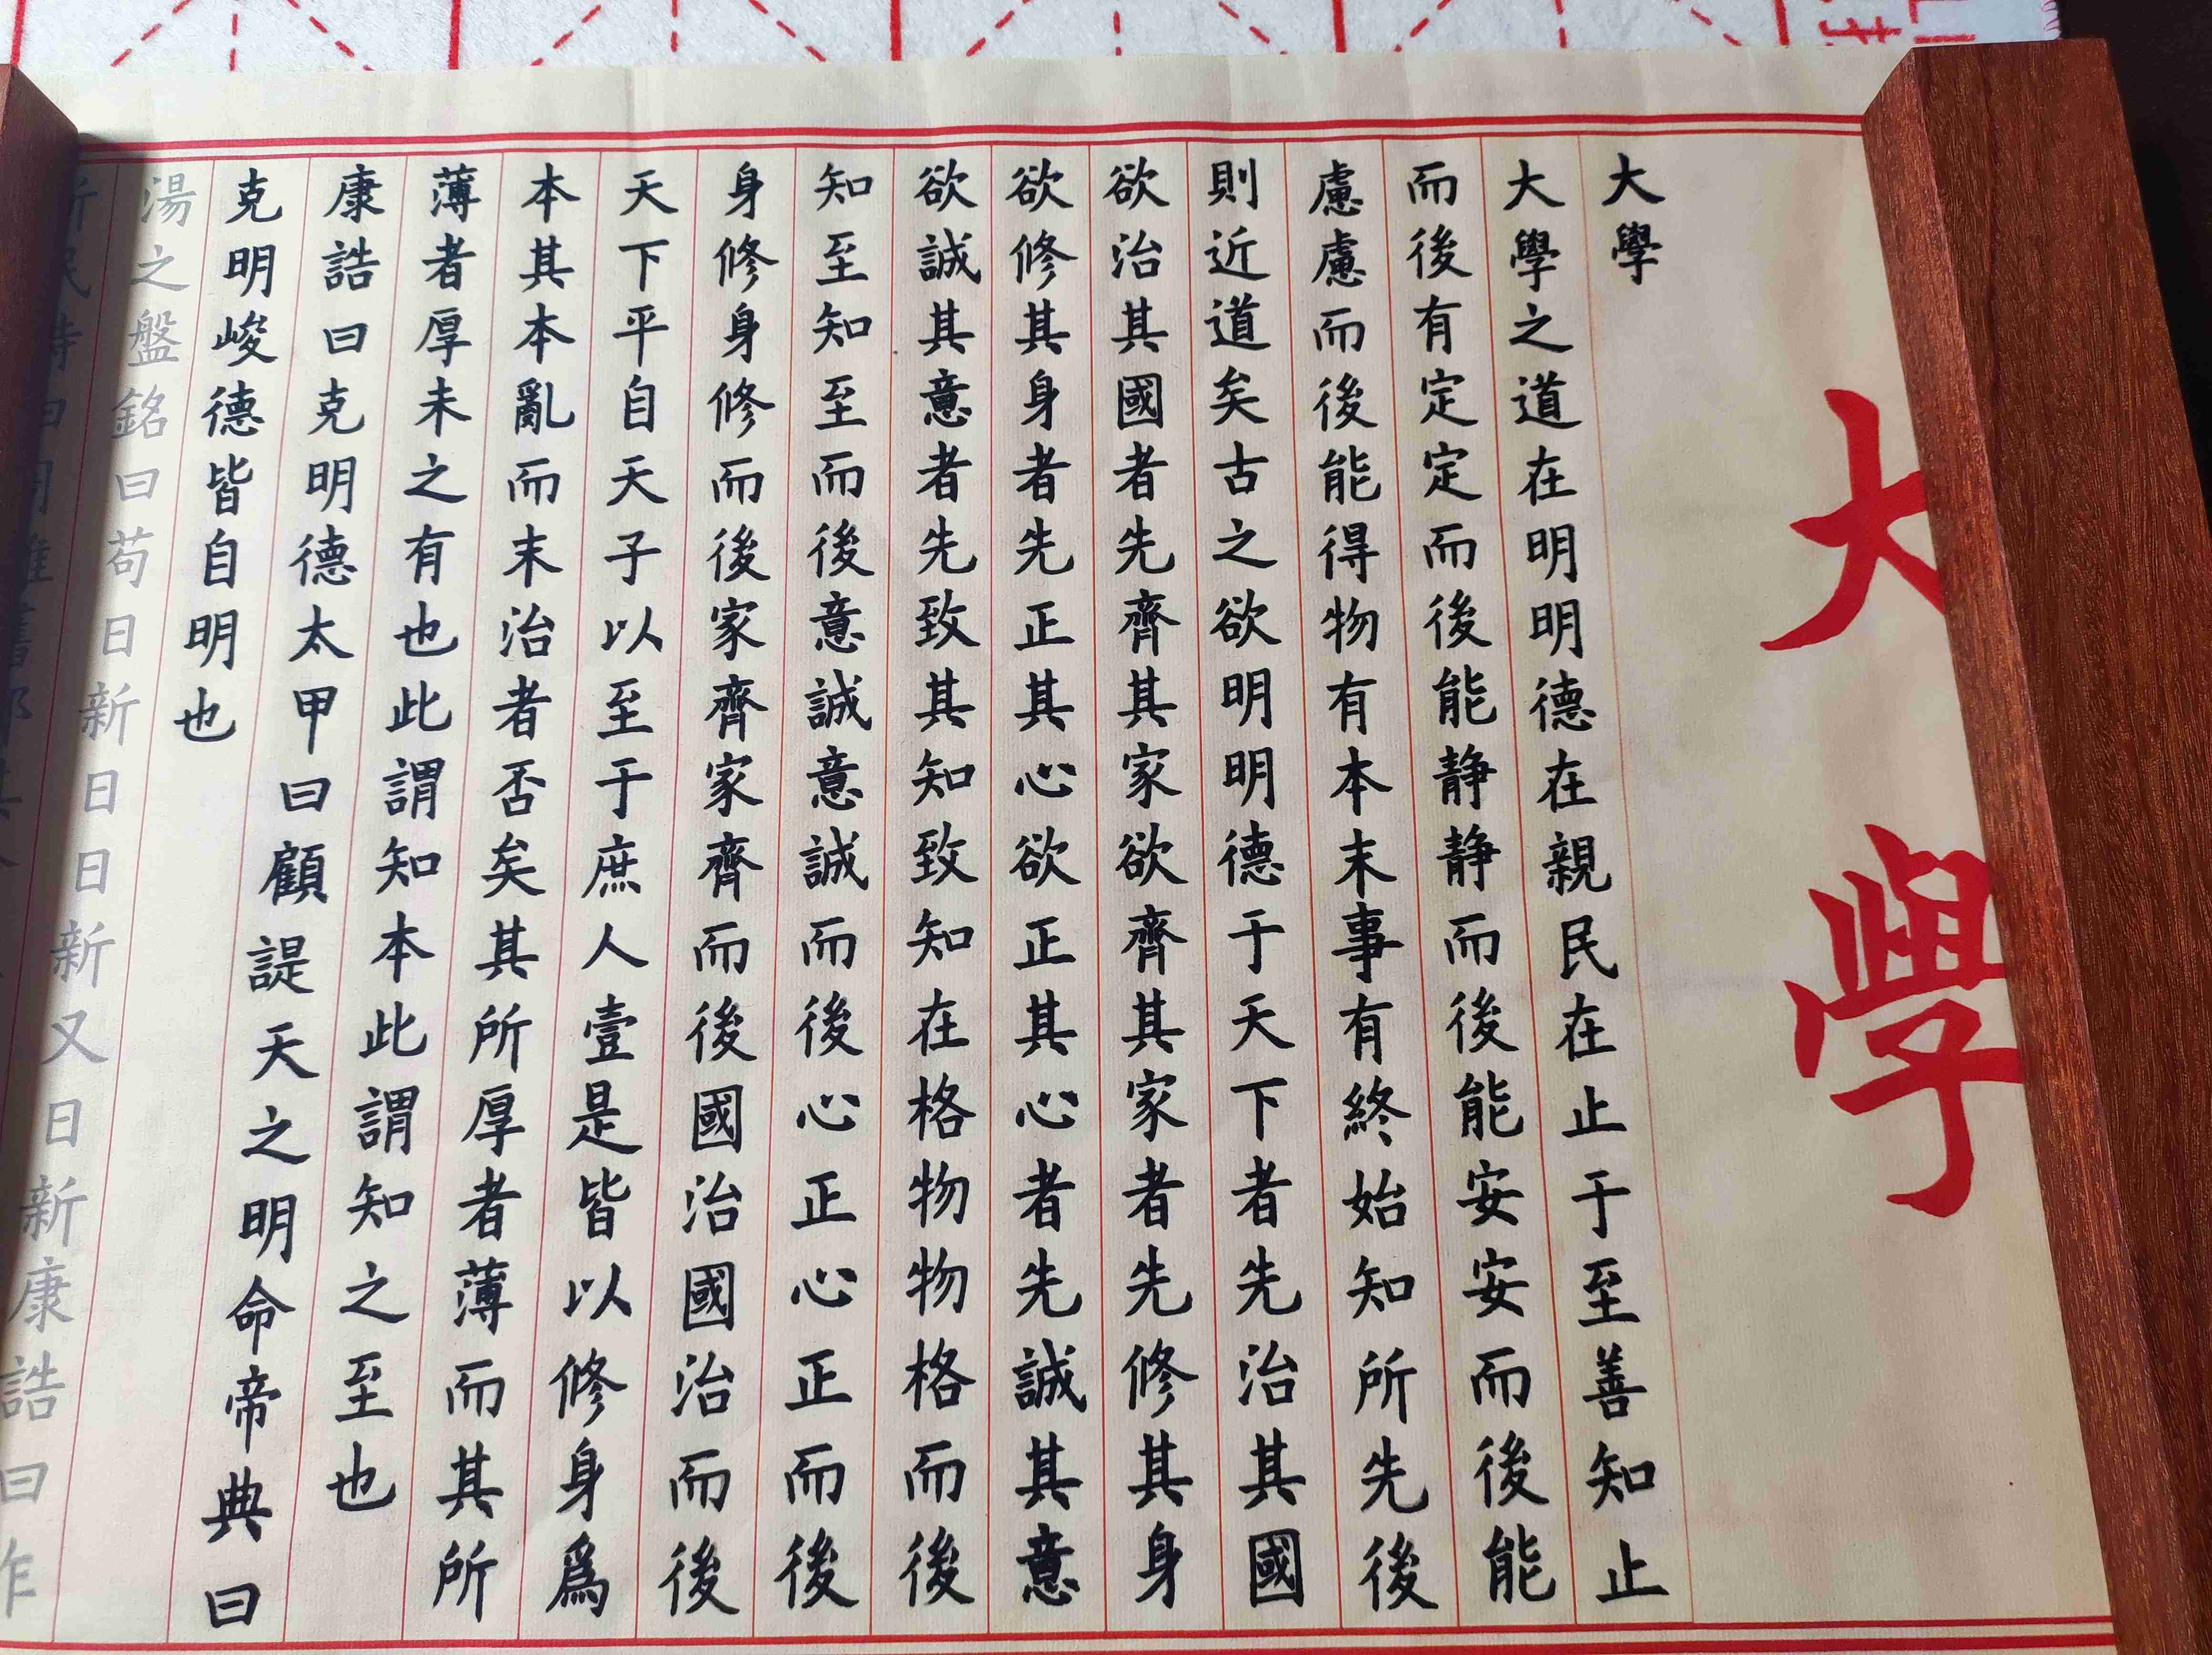 大學
大學
大學之道在明明德在親民在止于至善知止
而後有定定而後能静静而後能安安而後能
慮慮而後能得物有本末事有終始知所先後
則近道矣古之欲明明德于天下者先治其國
欲治其國者先齊其家欲齊其家者先修其身
欲修其身者先正其心欲正其心者先誠其意
欲誠其意者先致其知致知在格物物格而後
知至知至而後意誠意誠而後心正心正而後
身修身修而後家齊家齊而後國治國治而後
天下平自天子以至于庶人壹是皆以修身爲
本其本亂而末治者否矣其所厚者薄而其所
薄者厚未之有也此謂知本此謂知之至也
康誥曰克明德太甲曰顧諟天之明命帝典曰
克明峻德皆自明也
湯之盤銘曰苟日新日日新又日新康誥曰作